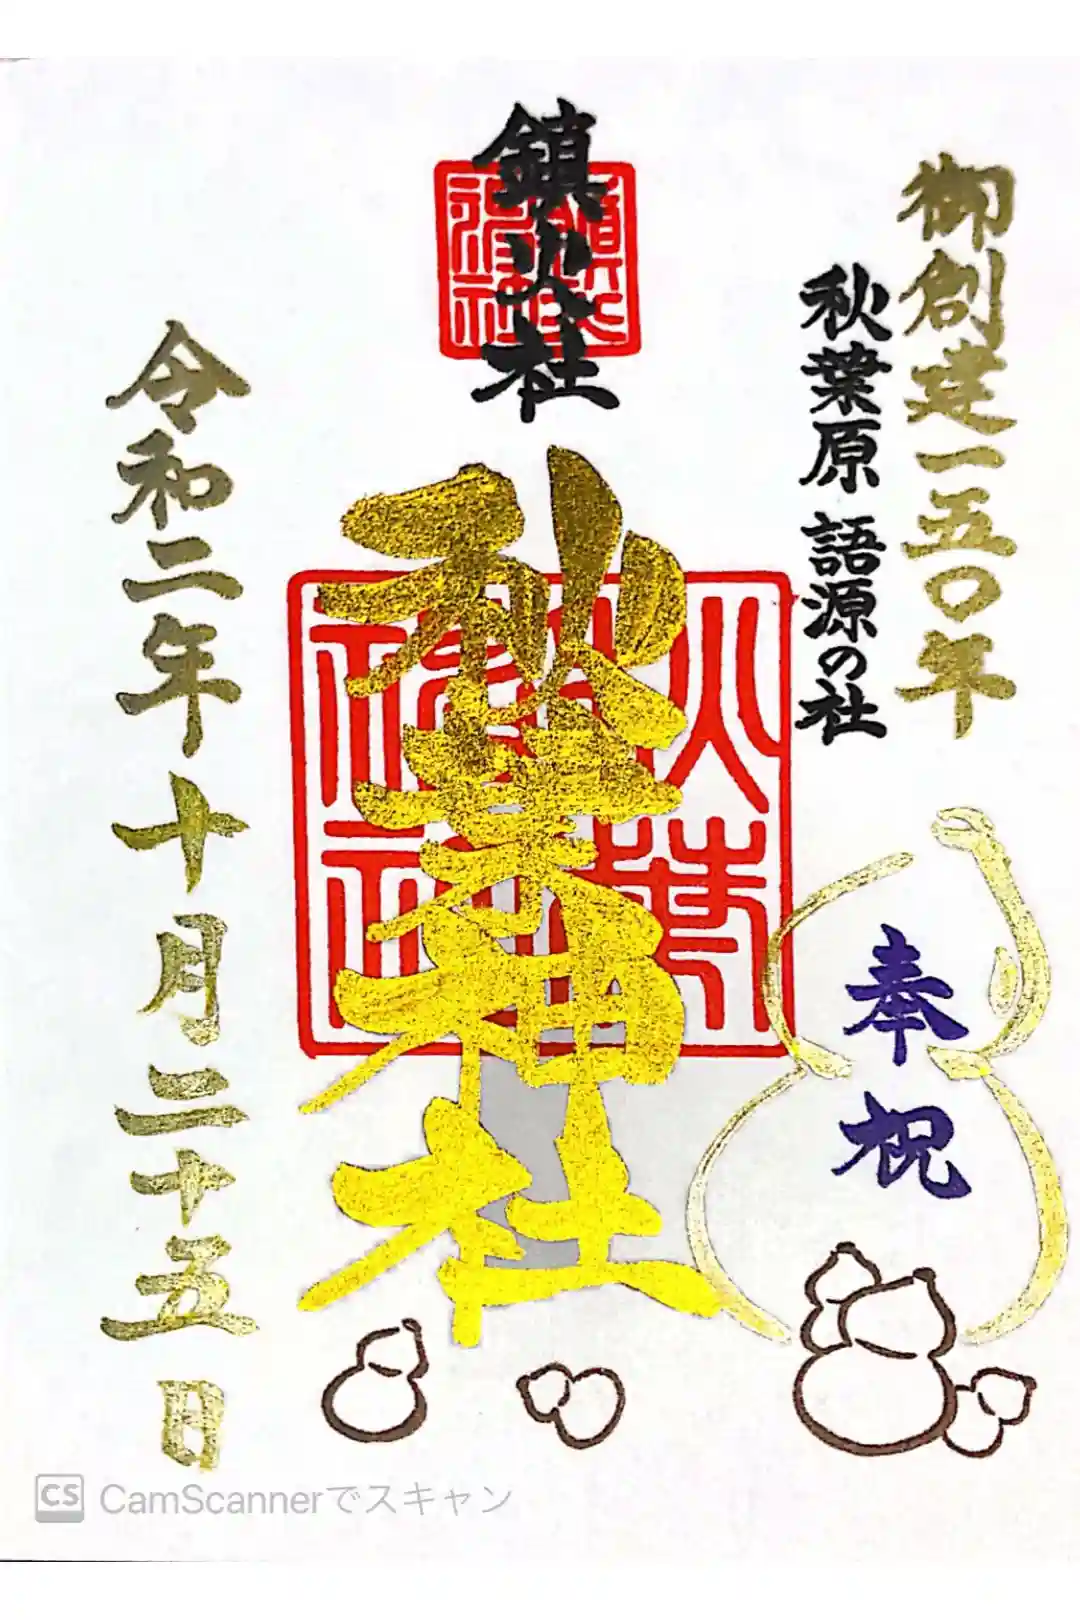 御創建一五〇年
秋葉原 語源の社
奉祝
鎮火社
秋葉神社
令和二年十月二十五日
CS CamScannerでスキャン